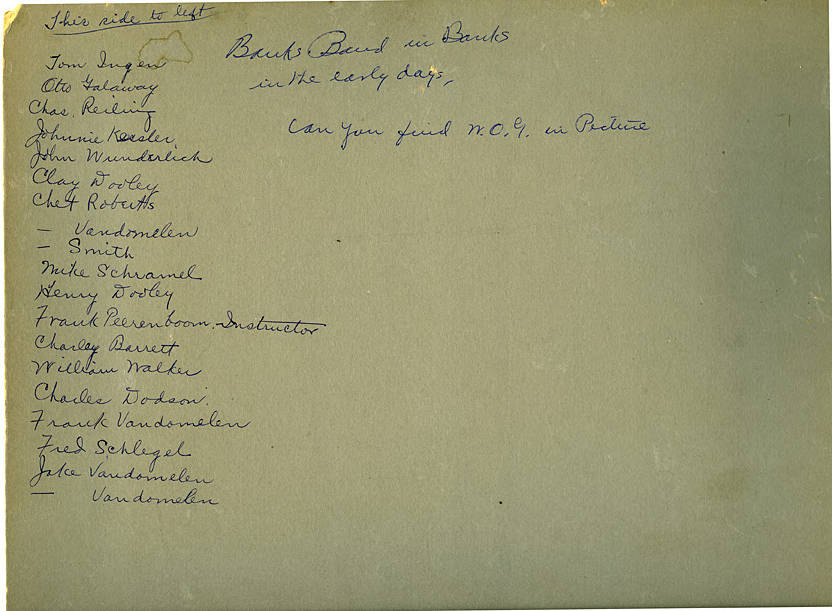 This side to left
Banks Band in Banks
in the early days,
Can you find W.O.G. in Picture
Tom Ingen
Otto Galaway
Chas. Reiling
Johnnie Kessler
John Wunderlich
Clay Dooley
Chet Roberts
— Vandomelen
— Smith
Mike Schramel
Henry Dooley
Frank Peerenboom. Instructor
Charley Barrett
William Walker
Charles Dodson.
Frank Vandomelen
Fred Schlegel
Jake Vandomelen
— Vandomelen